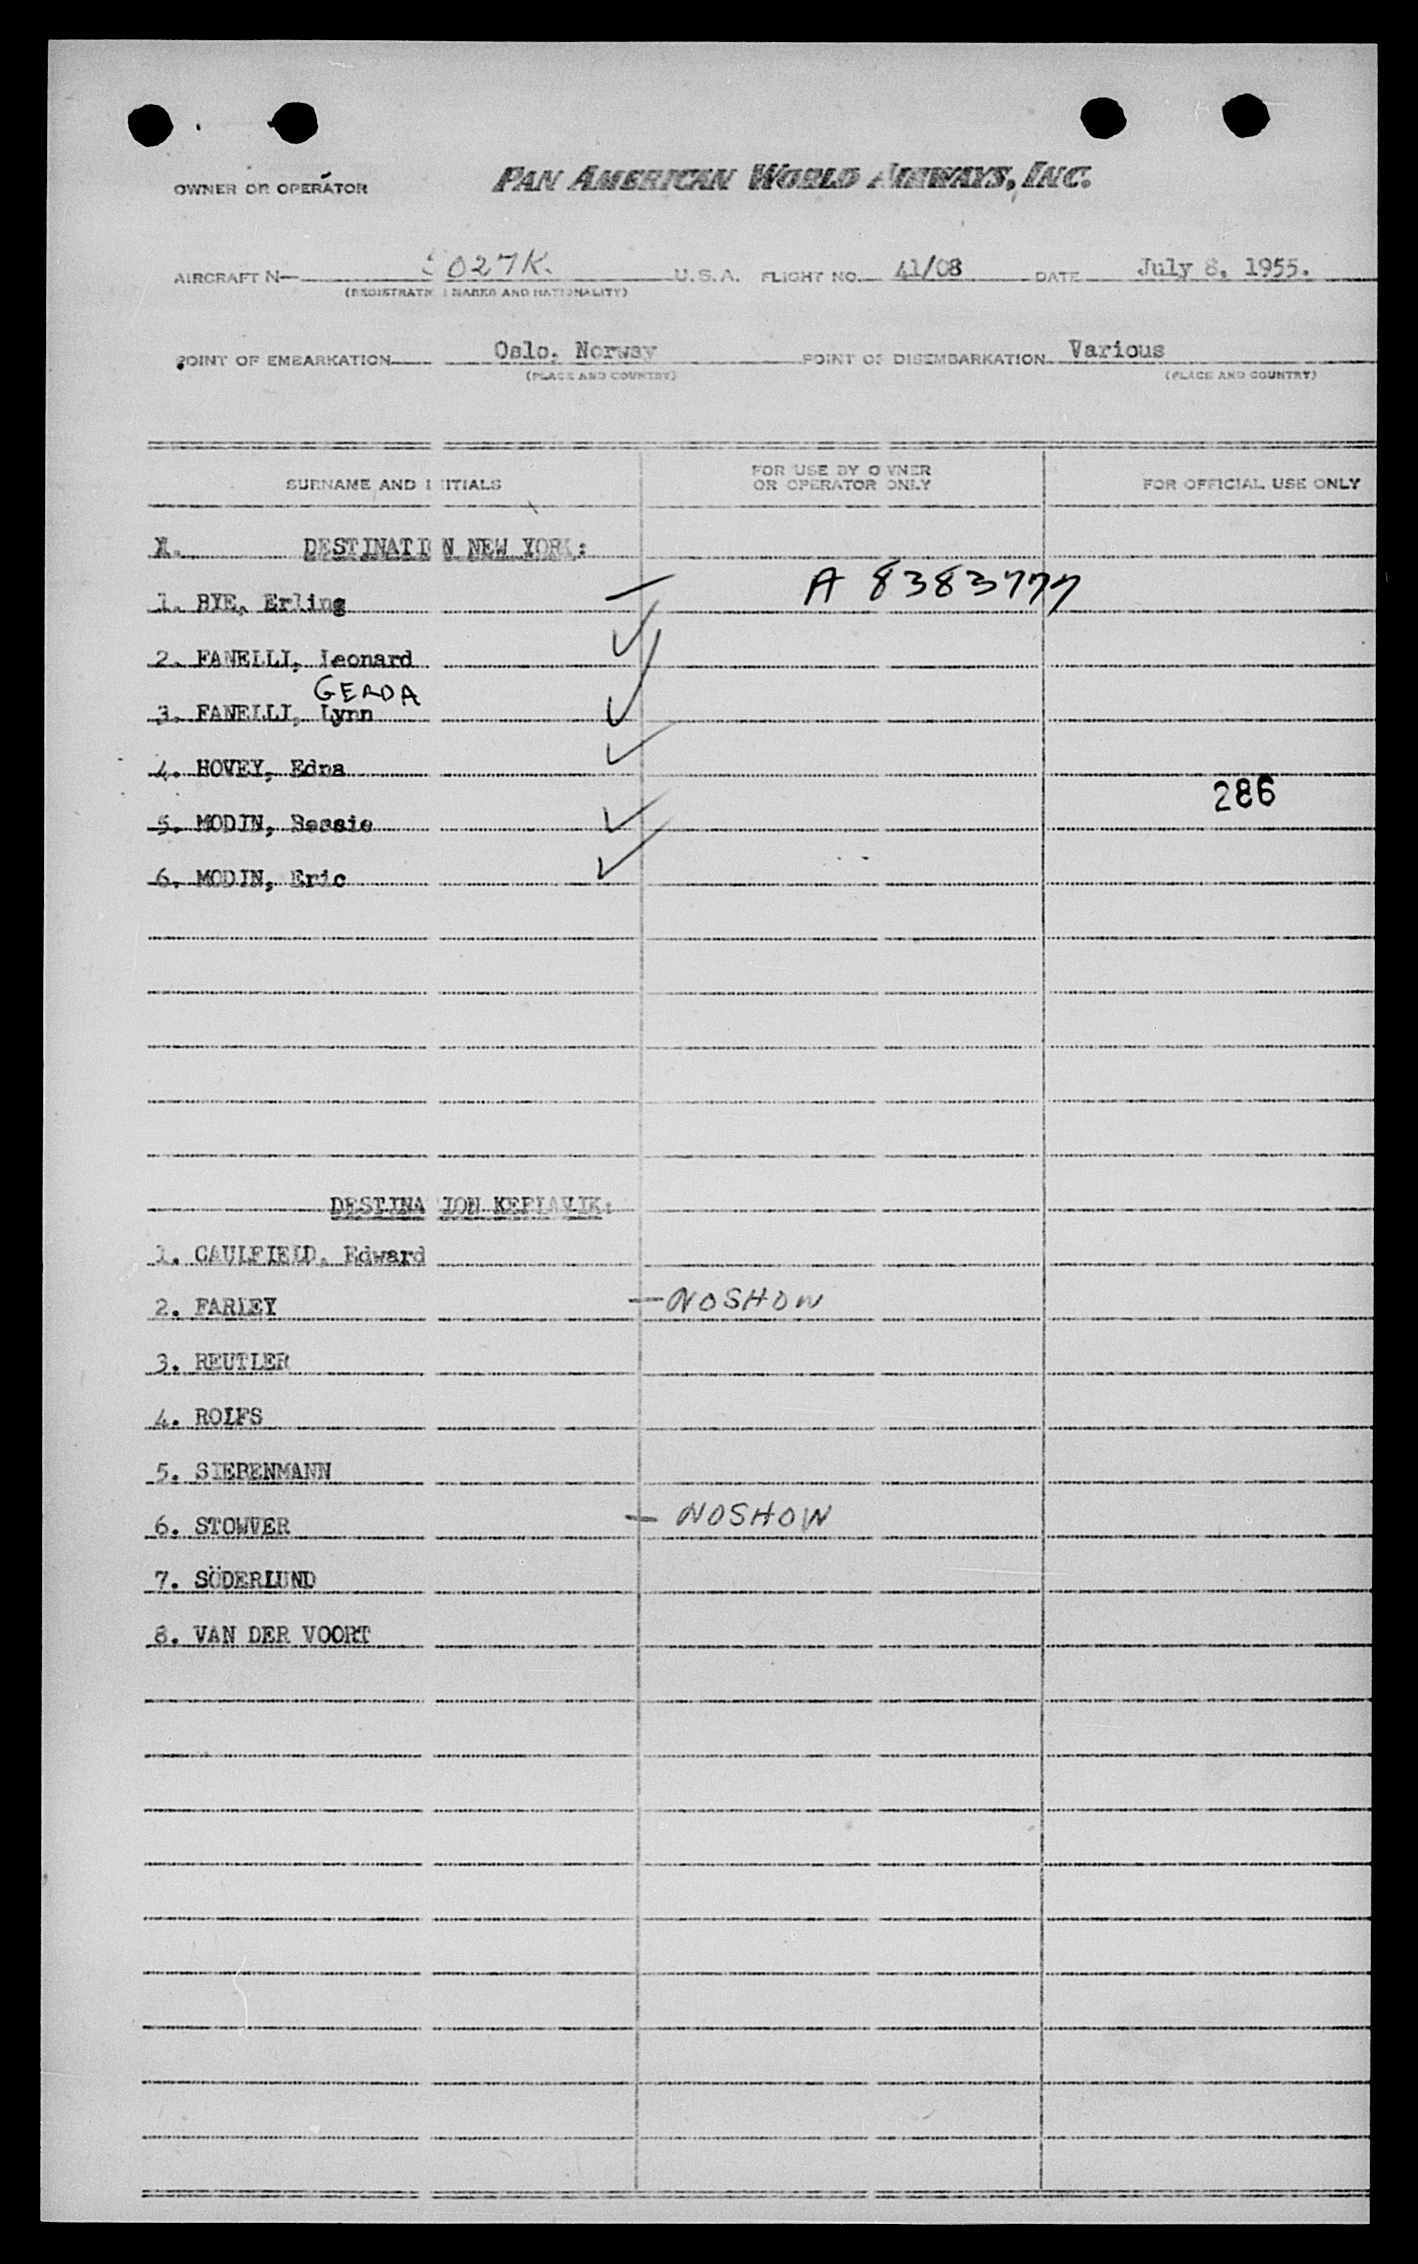 OWNER OR OPERATOR PAN AMERICAN WORLD AIRWAYS, INC.
AIRCRAFT N— 027K. U.S.A. FLIGHT NO. 41/08 DATE July 8, 1955.
(REGISTRATION MARKS AND NATIONALITY)
POINT OF EMBARKATION Oslo, Norway POINT OF DISEMBARKATION Various
(PLACE AND COUNTRY) (PLACE AND COUNTRY)
SURNAME AND INITIALS FOR USE BY OWNER OR OPERATOR ONLY FOR OFFICIAL USE ONLY
DESTINATION NEW YORK:
1. BYE, Erling A 8383777
2. FANELLI, Leonard
GERDA
3. FANELLI, Lynn
4. HOVEY, Edna
286
5. MODIN, Bessie
6. MODIN, Eric
DESTINATION KEFLAVIK:
1. CAULFIELD, Edward
2. FARLEY — NOSHOW
3. REUTLER
4. ROLFS
5. SIEBENMANN
6. STOWVER — NOSHOW
7. SÖDERLUND
8. VAN DER VOORT